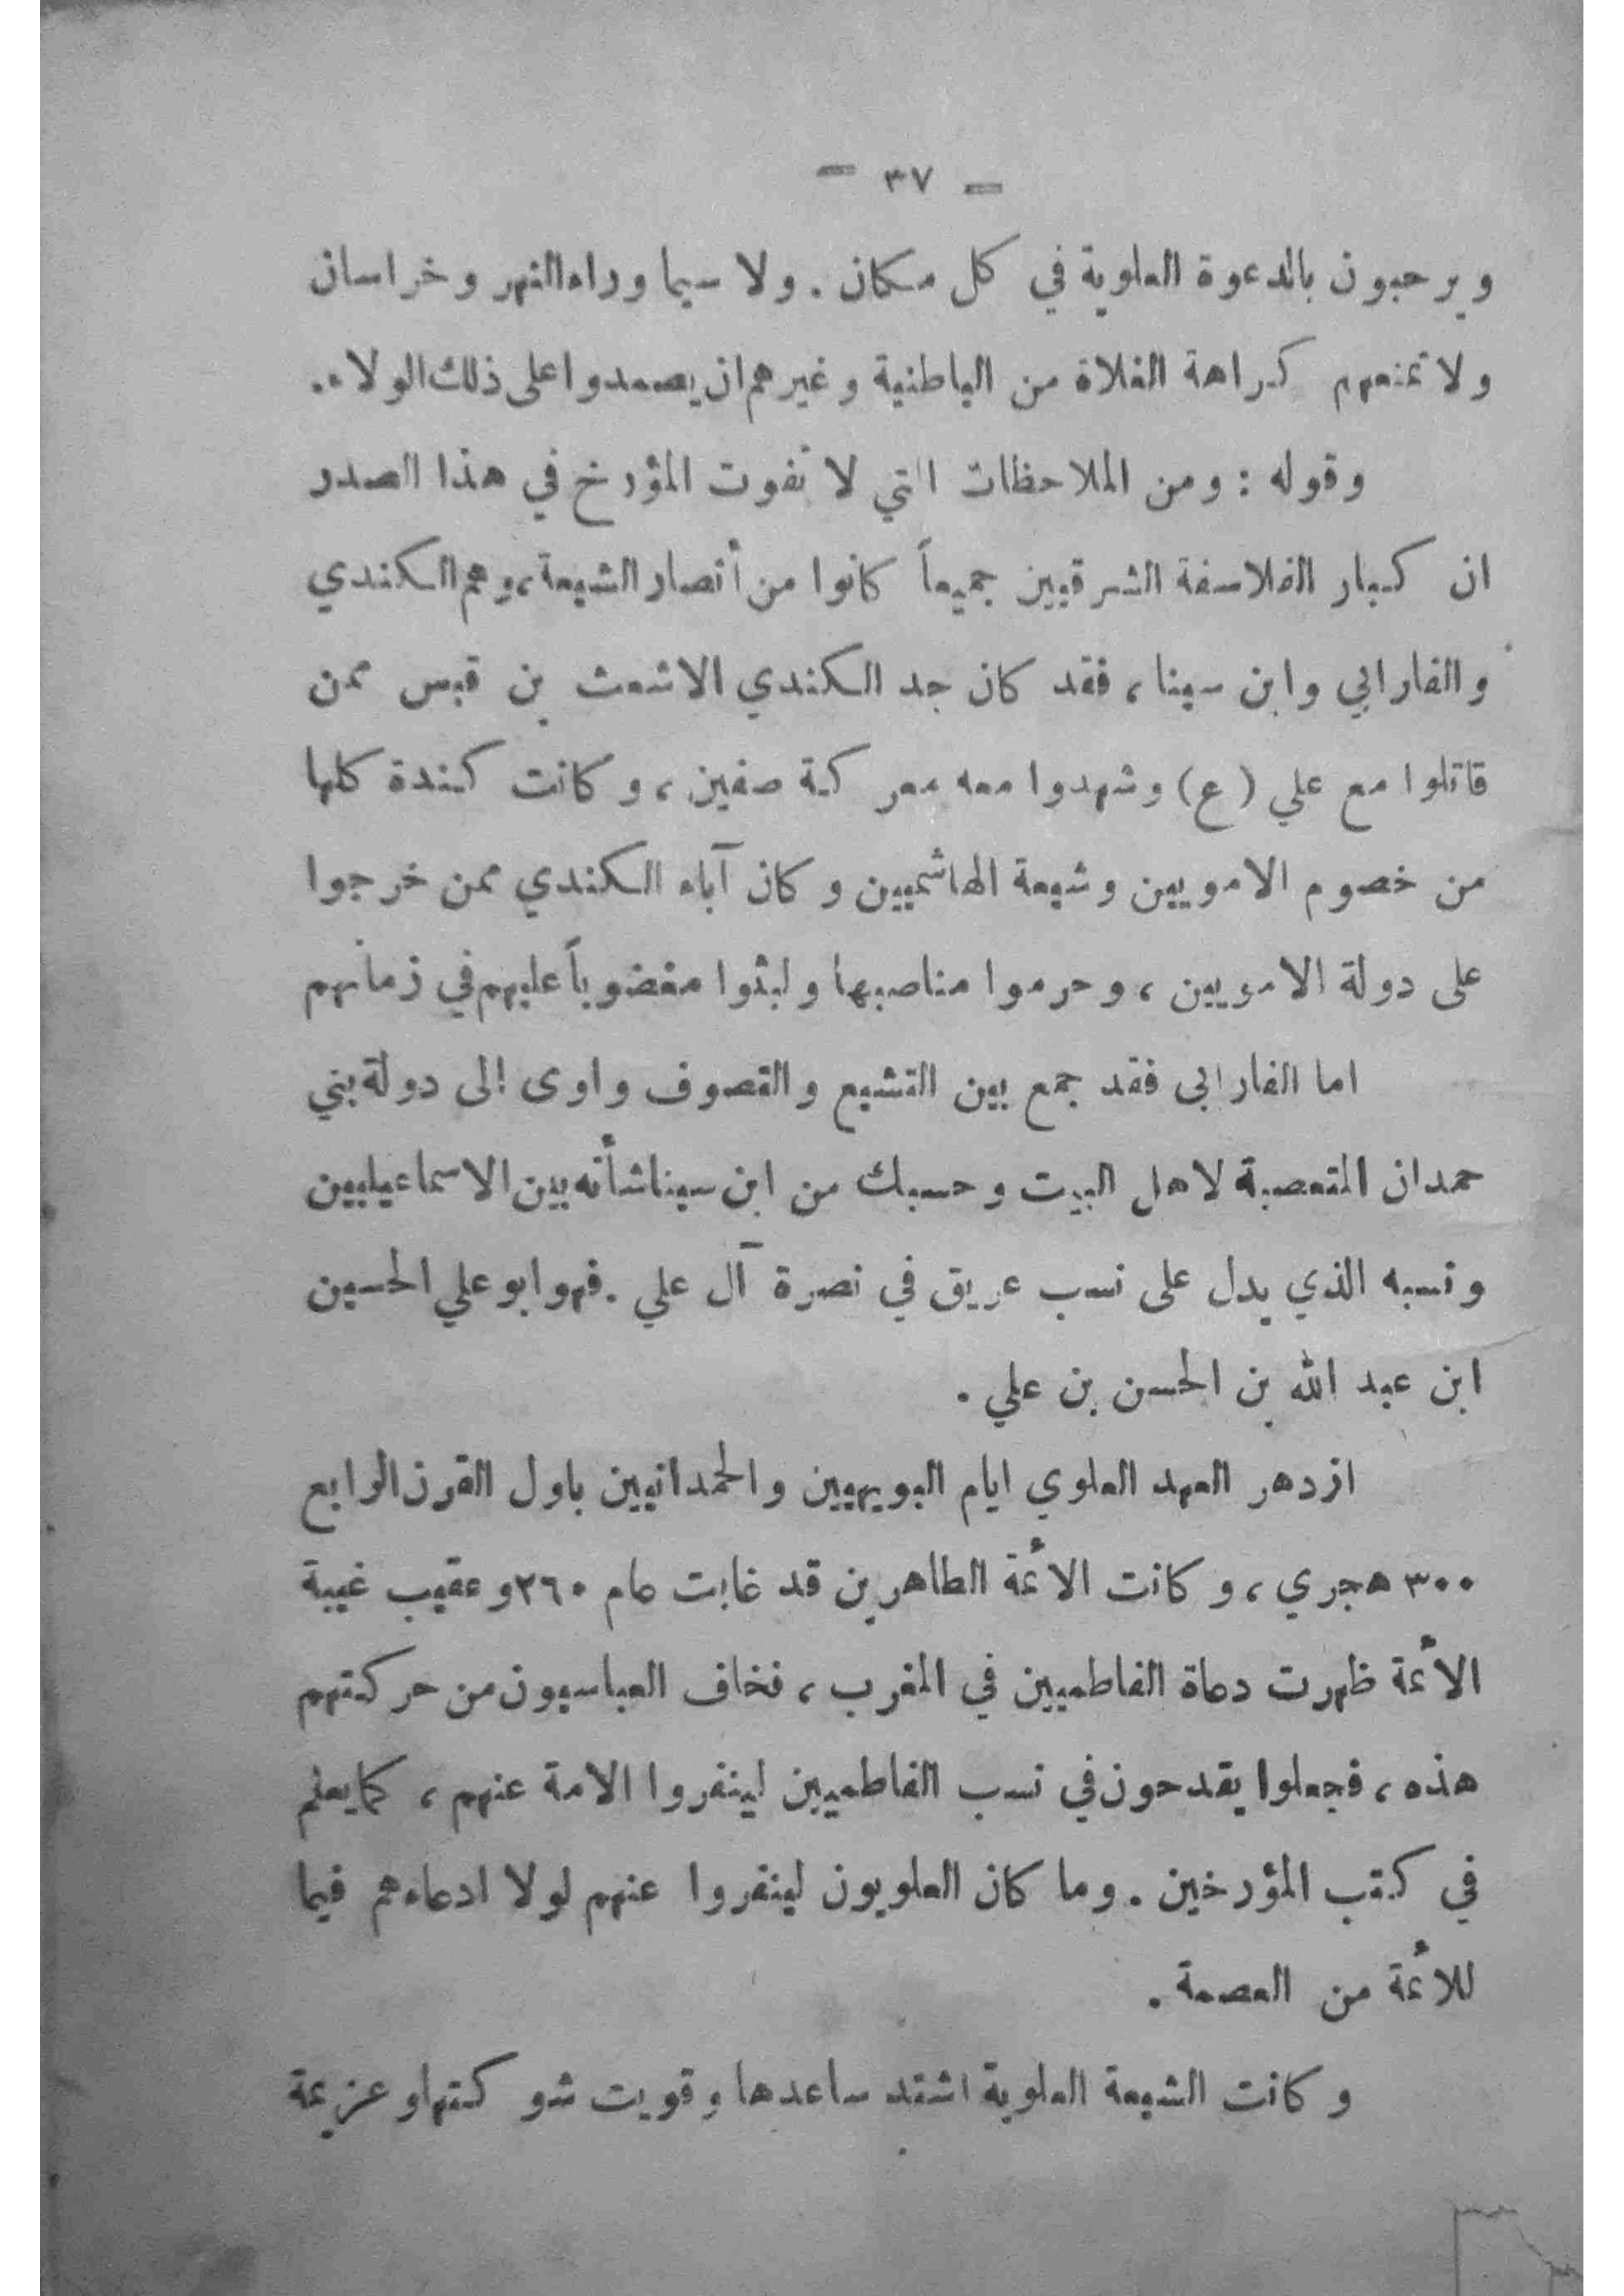 – ٣٧ –
ويرحبون بالدعوة العلوية في كل مكان . ولا سيما وراء النهر وخراسان
ولا تمنعهم كراهة الغلاة من الباطنية وغيرهم ان يصمدوا على ذلك الولاء .
وقوله : ومن الملاحظات التي لا تفوت المؤرخ في هذا الصدر
ان كبار الفلاسفة الشرقيين جميعاً كانوا من أنصار الشيعة ، وهم الكندي
والفارابي وابن سينا ، فقد كان جد الكندي الاشعث بن قيس ممن
قاتلوا مع علي (ع) وشهدوا معه معركة صفين ، وكانت كندة كلها
من خصوم الامويين وشيعة الهاشميين وكان آباء الكندي ممن خرجوا
على دولة الامويين ، وحرموا مناصبها ولبثوا مغضوباً عليهم في زمانهم
اما الفارابى فقد جمع بين التشيع والتصوف واوى الى دولة بني
حمدان المتعصبة لاهل البيت وحسبك من ابن سينا شأنه بين الاسماعيليين
ونسبه الذي يدل على نسب عريق في نصرة آل علي . فهو ابو علي الحسين
ابن عبد الله بن الحسن بن علي .
ازدهر العهد العلوي ايام البويهيين والحمدانيين باول القرن الرابع
٣٠٠ هجري ، وكانت الأئمة الطاهرين قد غابت عام ٢٦٠ وعقيب غيبة
الأئمة ظهرت دعاة الفاطميين في المغرب ، فخاف العباسيون من حركتهم
هذه ، فجعلوا يقدحون في نسب الفاطميين لينفروا الامة عنهم ، كما يعلم
في كتب المؤرخين . وما كان العلويون لينفروا عنهم لولا ادعاءهم فيما
للأئمة من العصمة .
وكانت الشيعة العلوية اشتد ساعدها وقويت شوكتها وعزيمة